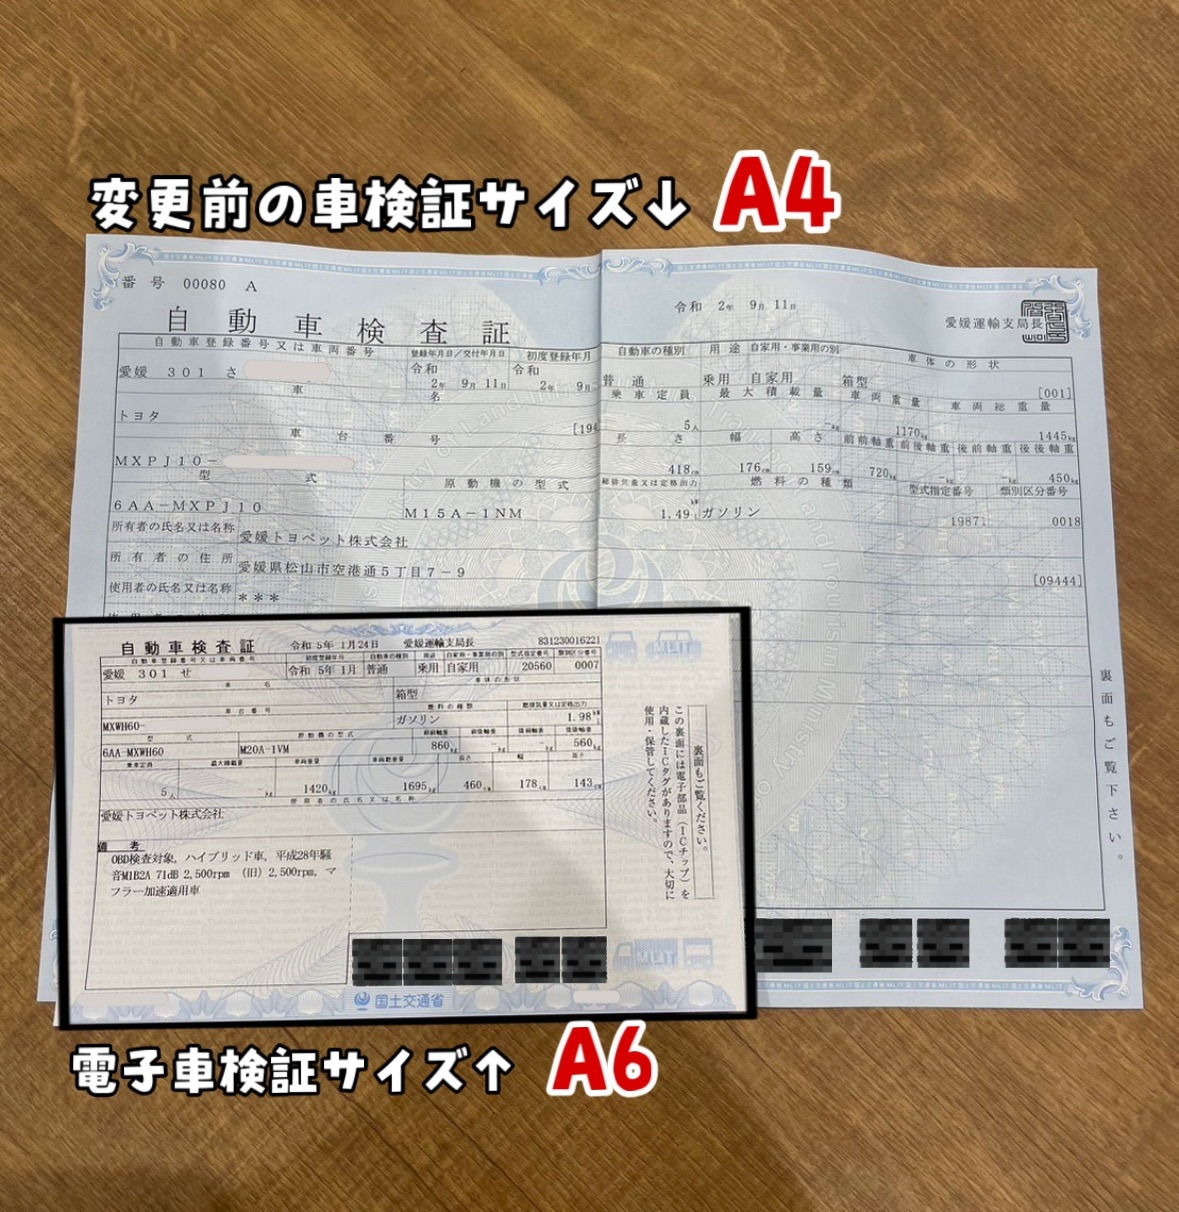 変更前の車検証サイズ↓ A4
番号 00080 A
令和 2年 9月 11日
愛媛運輸支局長
自動車検査証
自動車登録番号又は車両番号 登録年月日/交付年月日 初度登録年月 自動車の種別 用途 自家用・事業用の別 車体の形状
愛媛 301 さ 令和 2年 9月 11日 令和 2年 9月 普通 乗用 自家用 箱型 [001]
車名 乗車定員 最大積載量 車両重量 車両総重量
トヨタ [194 5人 -kg 1170kg 1445kg
車台番号 長さ 幅 高さ 前前軸重 前後軸重 後前軸重 後後軸重
MXPJ10- 418cm 176cm 159cm 720kg -kg -kg 450kg
型式 原動機の型式 総排気量又は定格出力 燃料の種類 型式指定番号 類別区分番号
6AA-MXPJ10 M15A-1NM 1.49 ガソリン 19871 0018
所有者の氏名又は名称 愛媛トヨペット株式会社
所有者の住所 愛媛県松山市空港通5丁目7-9 [09444]
使用者の氏名又は名称 ***
裏面もご覧下さい。
自動車検査証 令和 5年 1月24日 愛媛運輸支局長 831230016221
自動車登録番号又は車両番号 初度登録年月 自動車の種別 用途 自家用・事業用の別 型式指定番号 類別区分番号
愛媛 301 せ 令和 5年 1月 普通 乗用 自家用 20560 0007
車名 車体の形状
トヨタ 箱型
車台番号 燃料の種類 総排気量又は定格出力
MXWH60- ガソリン 1.98
型式 原動機の型式 前前軸重 前後軸重 後前軸重 後後軸重
6AA-MXWH60 M20A-1VM 860kg -kg -kg 560kg
乗車定員 最大積載量 車両重量 車両総重量 長さ 幅 高さ
5人 -kg 1420kg 1695kg 460cm 178cm 143cm
使用者の氏名又は名称
愛媛トヨペット株式会社
備考
OBD検査対象, ハイブリッド車, 平成28年騒
音M1B2A 71dB 2,500rpm (旧) 2,500rpm, マ
フラー加速適用車
裏面もご覧ください。
この裏面には電子部品(ICチップ)を
内蔵したICタグがありますので、大切に
使用・保管してください。
MLIT
国土交通省
電子車検証サイズ↑ A6